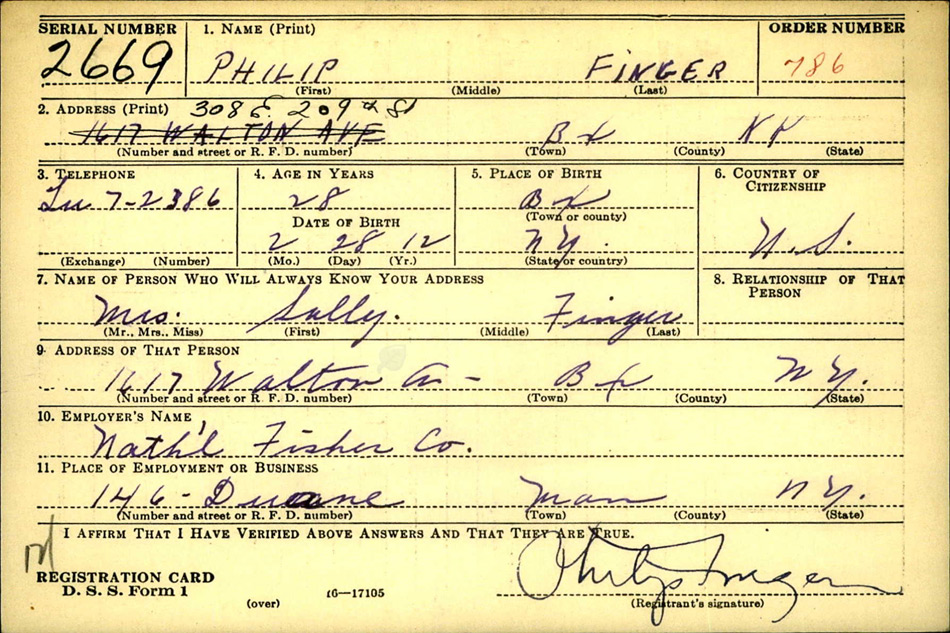 SERIAL NUMBER 1. NAME (Print) ORDER NUMBER
2669 PHILIP FINGER 786
(First) (Middle) (Last)
2. ADDRESS (Print) 308 E. 209th St
1617 WALTON AVE Bx NY
(Number and street or R. F. D. number) (Town) (County) (State)
3. TELEPHONE 4. AGE IN YEARS 5. PLACE OF BIRTH 6. COUNTRY OF
CITIZENSHIP
Lu 7-2386 28 Bx
(Town or county)
DATE OF BIRTH
2 28 12 NY. U.S.
(Exchange) (Number) (Mo.) (Day) (Yr.) (State or country)
7. NAME OF PERSON WHO WILL ALWAYS KNOW YOUR ADDRESS 8. RELATIONSHIP OF THAT
PERSON
Mrs. Sally. Finger
(Mr., Mrs., Miss) (First) (Middle) (Last)
9. ADDRESS OF THAT PERSON
1617 Walton Av - Bx NY.
(Number and street or R. F. D. number) (Town) (County) (State)
10. EMPLOYER'S NAME
Nath'l Fisher Co.
11. PLACE OF EMPLOYMENT OR BUSINESS
146 - Duane Man NY.
(Number and street or R. F. D. number) (Town) (County) (State)
I AFFIRM THAT I HAVE VERIFIED ABOVE ANSWERS AND THAT THEY ARE TRUE.
REGISTRATION CARD
D. S. S. Form 1 Philip Finger
(over) 16—17105 (Registrant's signature)